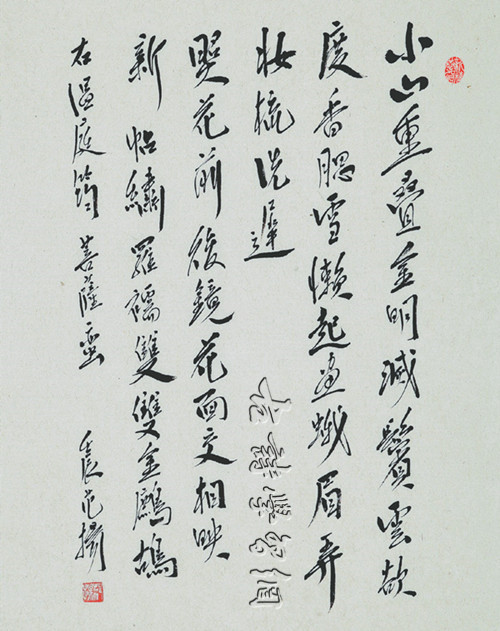 小山重疊金明滅鬢雲欲
度香腮雪懶起画蛾眉弄
妝梳洗遲
照花前後鏡花面交相映
新帖繡羅襦雙雙金鷓鴣
右溫庭筠菩薩蠻